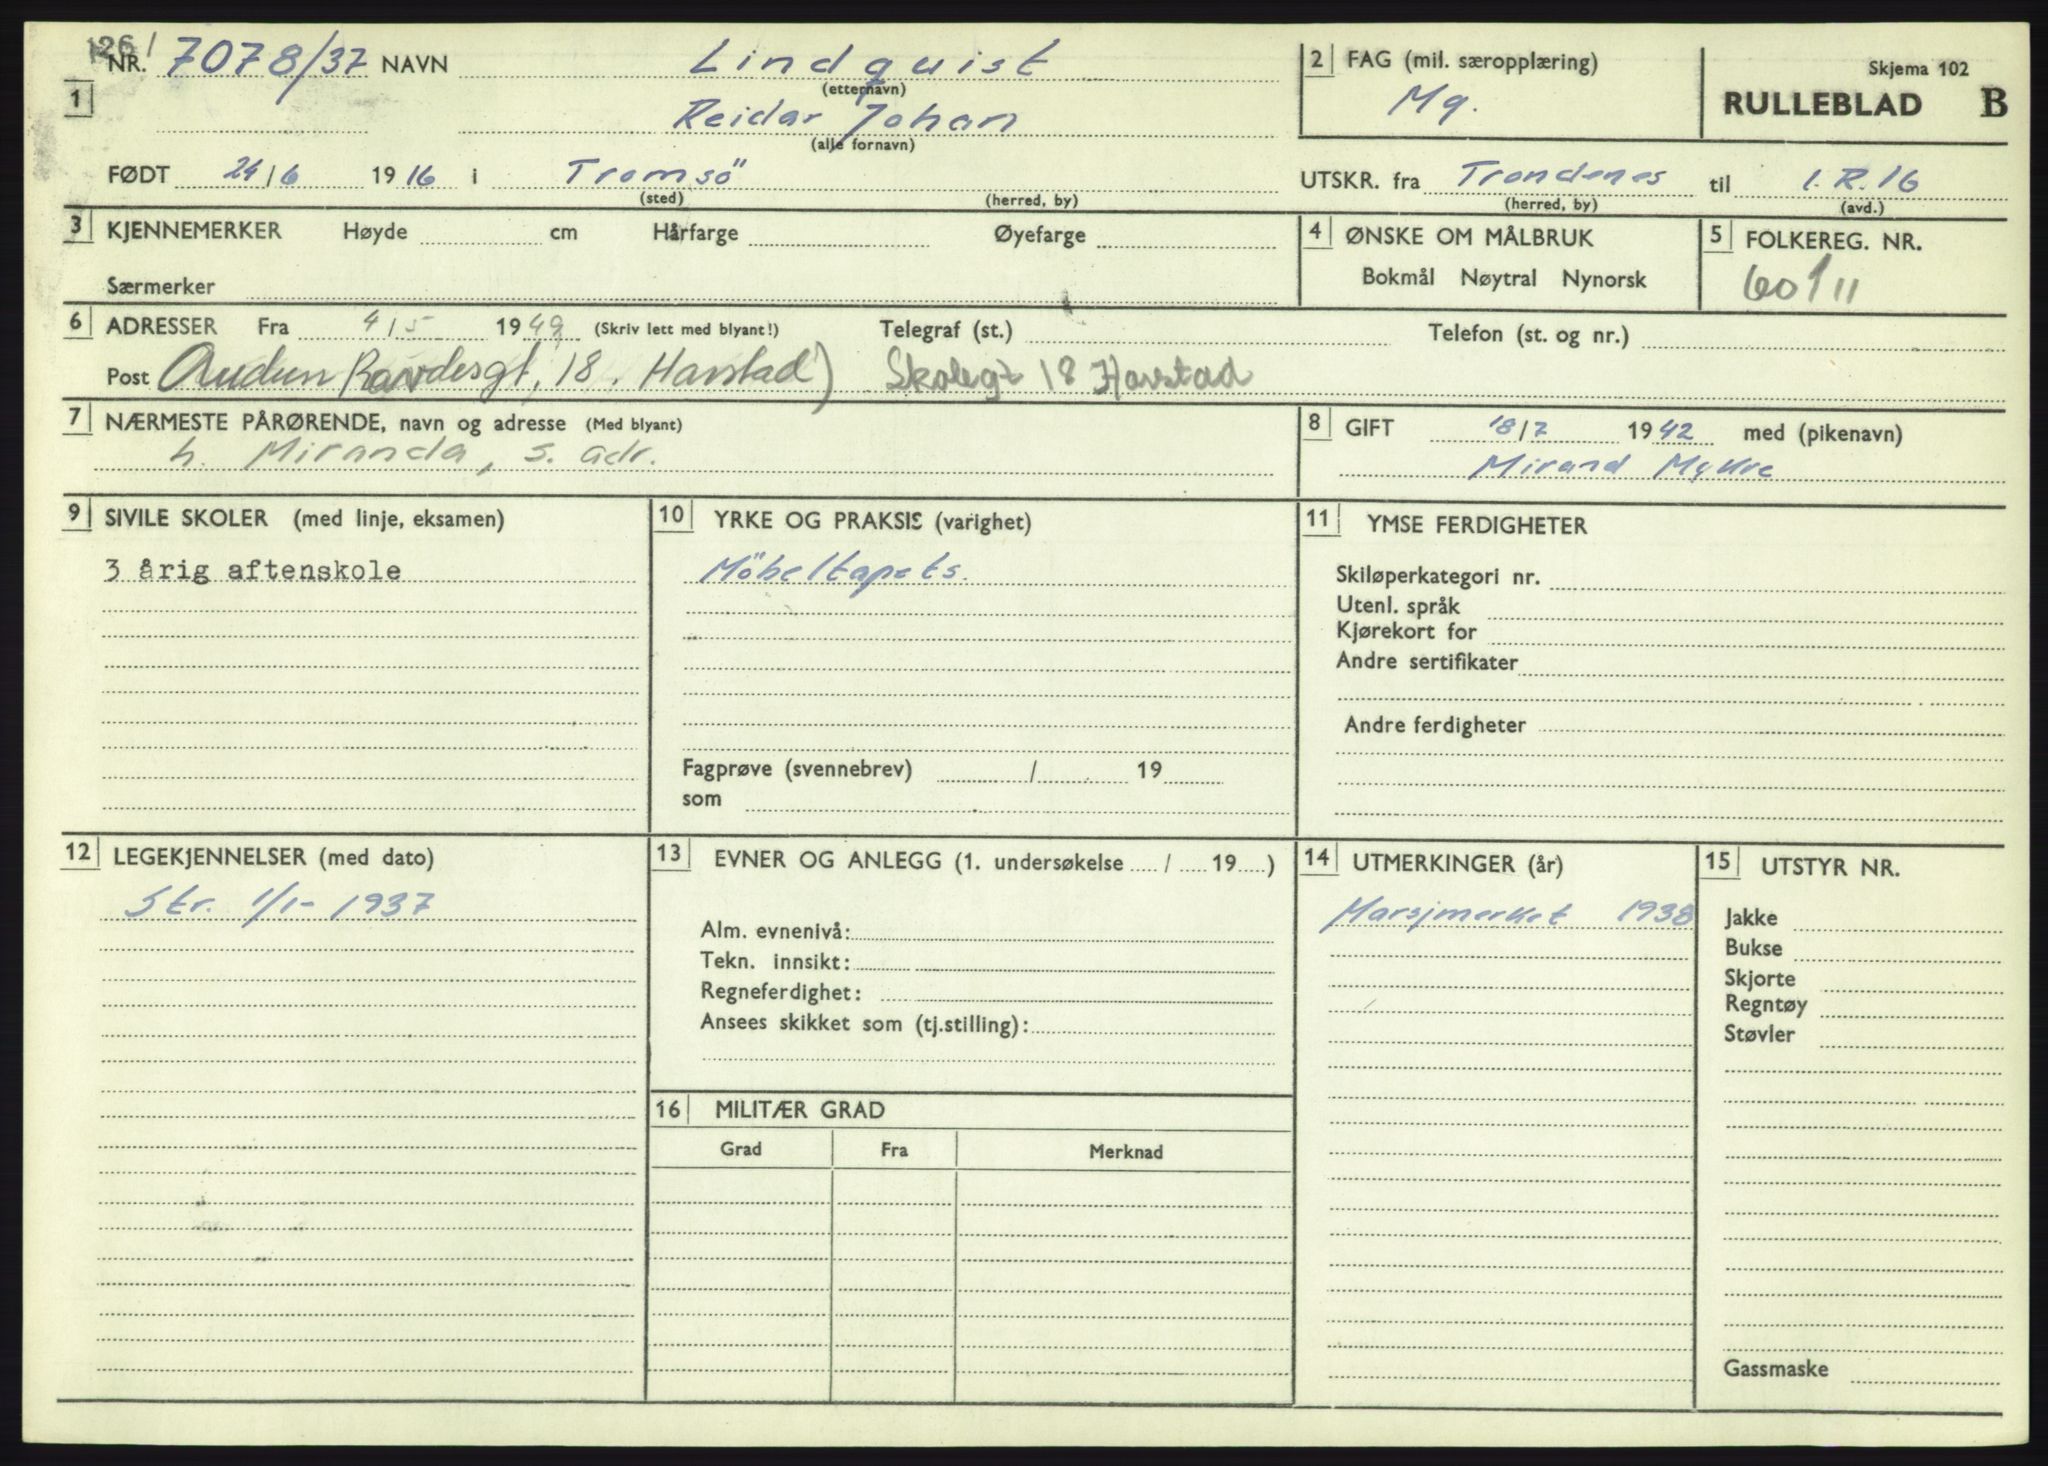 1261
NR. 7078/37 NAVN Lindquist
(etternavn)
1 Reidar Johan
(alle fornavn)
FØDT 24/6 1916 i Tromsö
(sted) (herred, by)
2 FAG (mil. særopplæring)
Mg.
Skjema 102
RULLEBLAD B
UTSKR. fra Trondenes til I.R.16
(herred, by) (avd.)
3 KJENNEMERKER Høyde cm Hårfarge Øyefarge
Særmerker
4 ØNSKE OM MÅLBRUK
Bokmål Nøytral Nynorsk
5 FOLKEREG. NR.
6 ADRESSER Fra 4/5 1949 (Skriv lett med blyant!) Telegraf (st.) Telefon (st. og nr.)
Post Audun Ravdesgt. 18. Harstad) Skolegt 18 Harstad
7 NÆRMESTE PÅRØRENDE, navn og adresse (Med blyant)
h. Miranda, s. adr.
8 GIFT 18/7 1942 med (pikenavn)
Mirand
9 SIVILE SKOLER (med linje, eksamen)
3 årig aftenskole
10 YRKE OG PRAKSIS (varighet)
Möbeltapets.
Fagprøve (svennebrev) / 19
som
11 YMSE FERDIGHETER
Skiløperkategori nr.
Utenl. språk
Kjørekort for
Andre sertifikater
Andre ferdigheter
12 LEGEKJENNELSER (med dato)
Str. 1/1- 1937
13 EVNER OG ANLEGG (1. undersøkelse / 19 )
Alm. evnenivå:
Tekn. innsikt:
Regneferdighet:
Ansees skikket som (tj.stilling):
16 MILITÆR GRAD
Grad Fra Merknad
14 UTMERKINGER (år)
Marsjmerket 1938
15 UTSTYR NR.
Jakke
Bukse
Skjorte
Regntøy
Støvler
Gassmaske